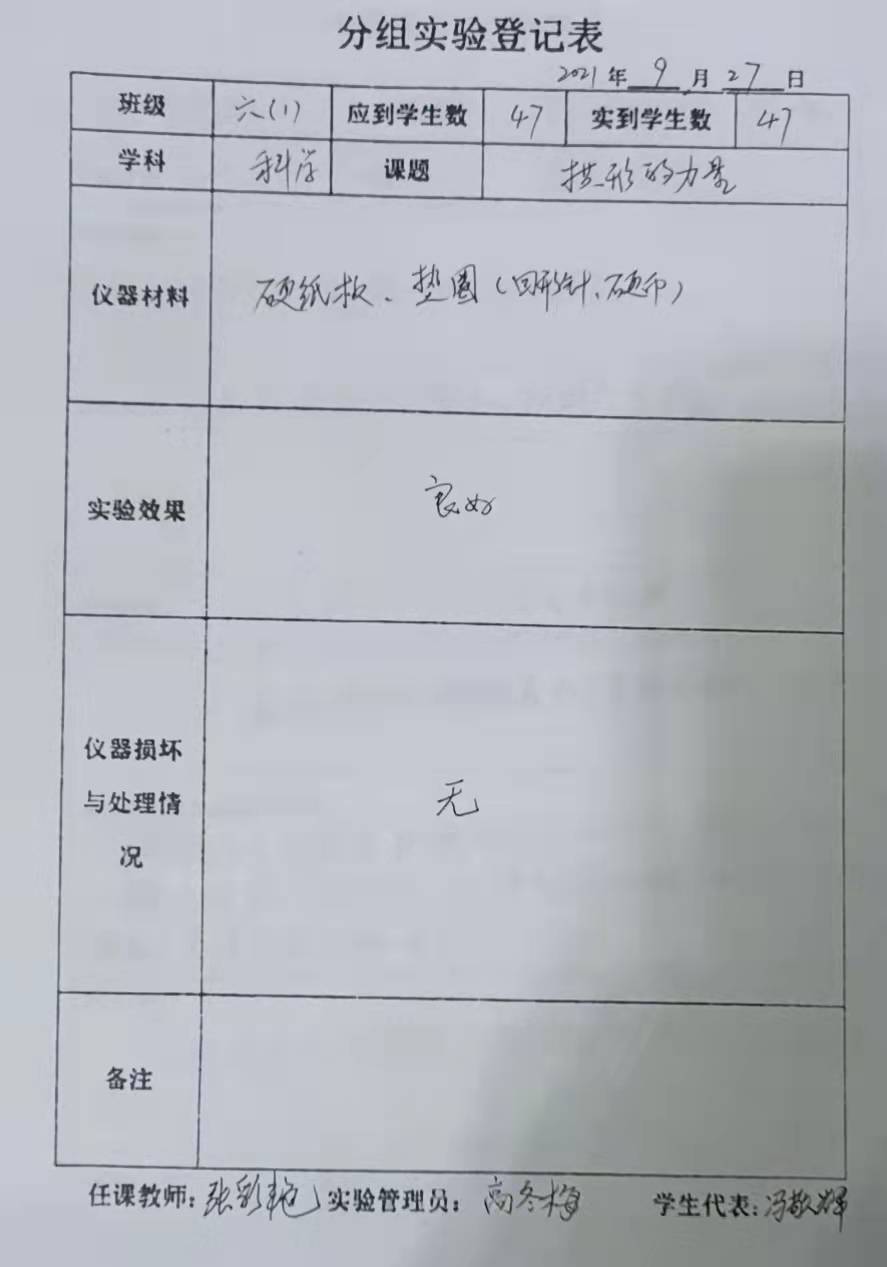 分组实验登记表
2021年 9 月 27 日
班级 六(1) 应到学生数 47 实到学生数 47
学科 科学 课题 拱形的力量
仪器材料 硬纸板、垫圈(回形针、硬币)
实验效果 良好
仪器损坏
与处理情 无
况
备注
任课教师:张彩艳 实验管理员:高冬梅 学生代表:冯敬辉